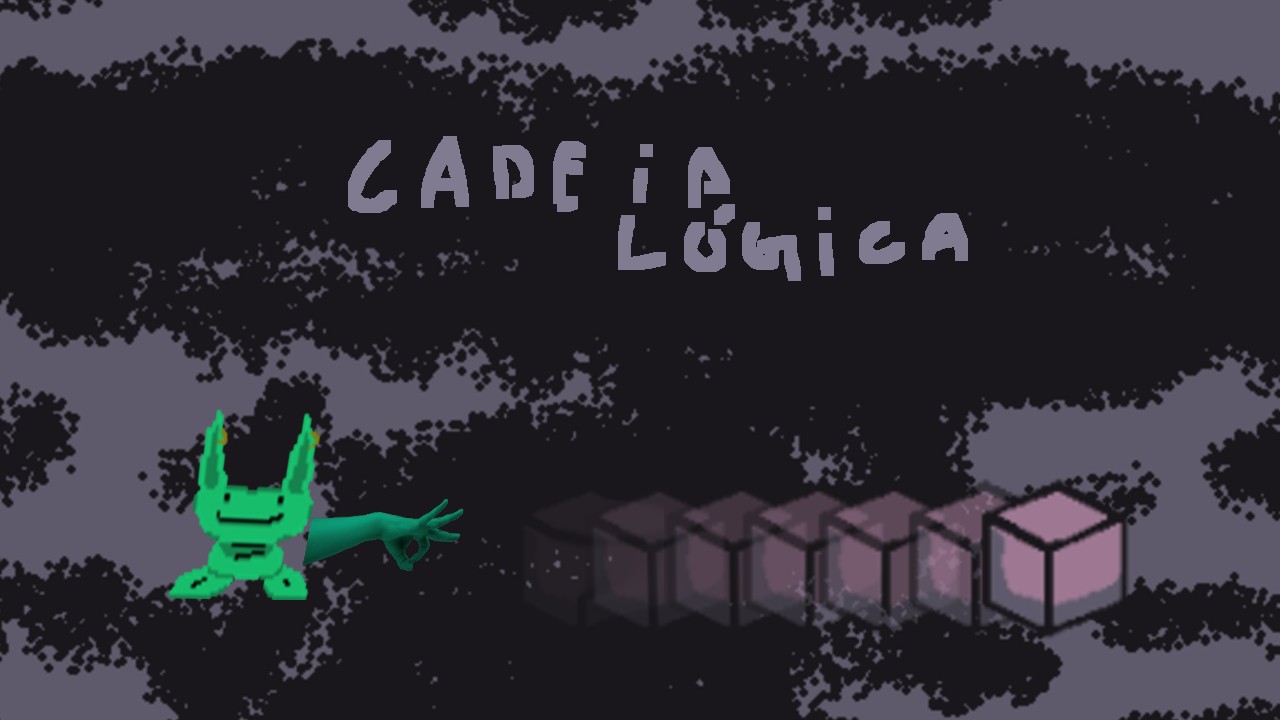 CADEiA
LÓGiCA